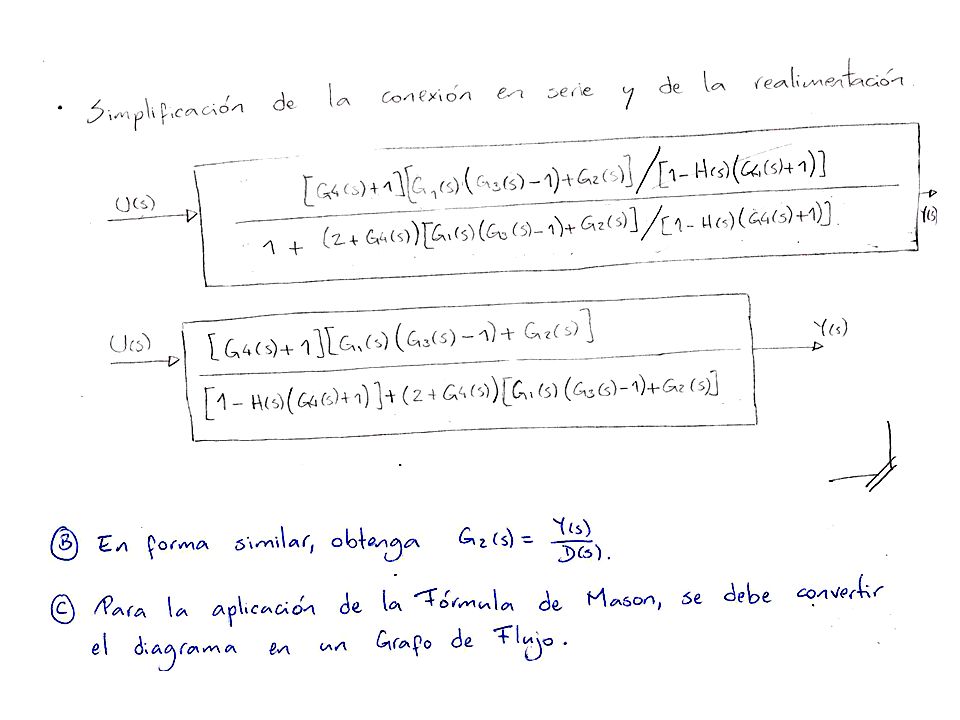 · Simplificación de la conexión en serie y de la realimentación.
U(s)
[G4(s)+1][G1(s)(G3(s)-1)+G2(s)]/[1-H(s)(G4(s)+1)]
1 + (2+G4(s))[G1(s)(G0(s)-1)+G2(s)]/[1-H(s)(G4(s)+1)]
Y(s)
U(s)
[G4(s)+1][G1(s)(G3(s)-1)+G2(s)]
[1-H(s)(G4(s)+1)]+(2+G4(s))[G1(s)(G3(s)-1)+G2(s)]
Y(s)
B En forma similar, obtenga G2(s) = Y(s)/D(s).
C Para la aplicación de la Fórmula de Mason, se debe convertir
el diagrama en un Grafo de Flujo.